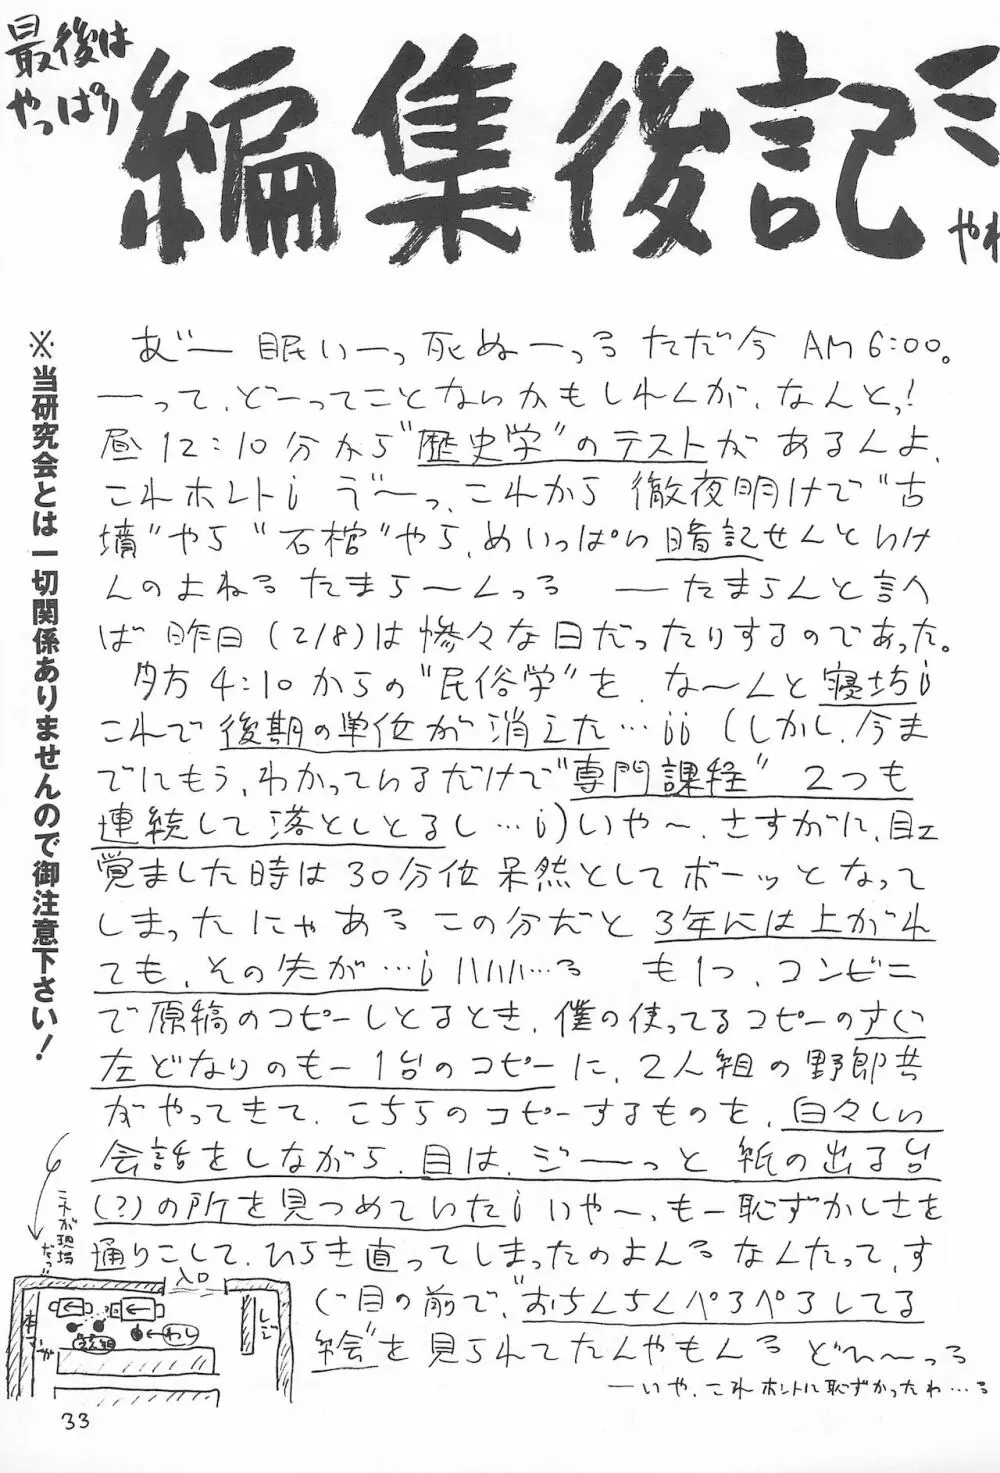 最後は
やっぱり
編集後記ミ
やれ
※当研究会とは一切関係ありませんので御注意下さい！
あ゛〜 眠いーっ 死ぬーっる ただ今 AM6:00。
ーって、どーってことないかもしれんが、なんとっ!
昼12:10分から"歴史学"のテストが あるんよ、
これホントi う゛〜っ、これから 徹夜明けで"古
墳"やら"石棺"やら、めいっぱい暗記せんといけ
んのよねる たまら〜んっる ーたまらんと言へ
ば 昨日(2/8)は惨々な日だったりするのであった。
夕方4:10からの"民俗学"を、な〜んと寝坊i
これで後期の単位が消えた…ii (しかし、今ま
でにもう、わかっているだけで"専門課程" 2つも
連続して落としとるし…i)いや〜、さすがに、目エ
覚ました時は30分位呆然としてボーッとなって
しまったにゃある この分だと3年には上がれ
ても、その先が…i ||||||…る も1つ、コンビニ
で原稿のコピーしとるとき、僕の使ってるコピーのすぐ
左どなりのもー1台のコピーに、2人組の野郎共
がやってきて、こちらのコピーするものを、白々しい
会話をしながら、目は、ジーーっと 紙の出る台
(?)の所を見つめていたi いや〜、もー恥ずかしさを
通りこして、ひらき直ってしまったのよんる なんたって、す
ぐ目の前で、"おちんちんペろペろしてる
絵"を見られてたんやもんる どひ〜っる
ーいや、これホントに恥ずかったわ…る
これが現場
だっ!!
入口
本
2人組
わし
レジ
33